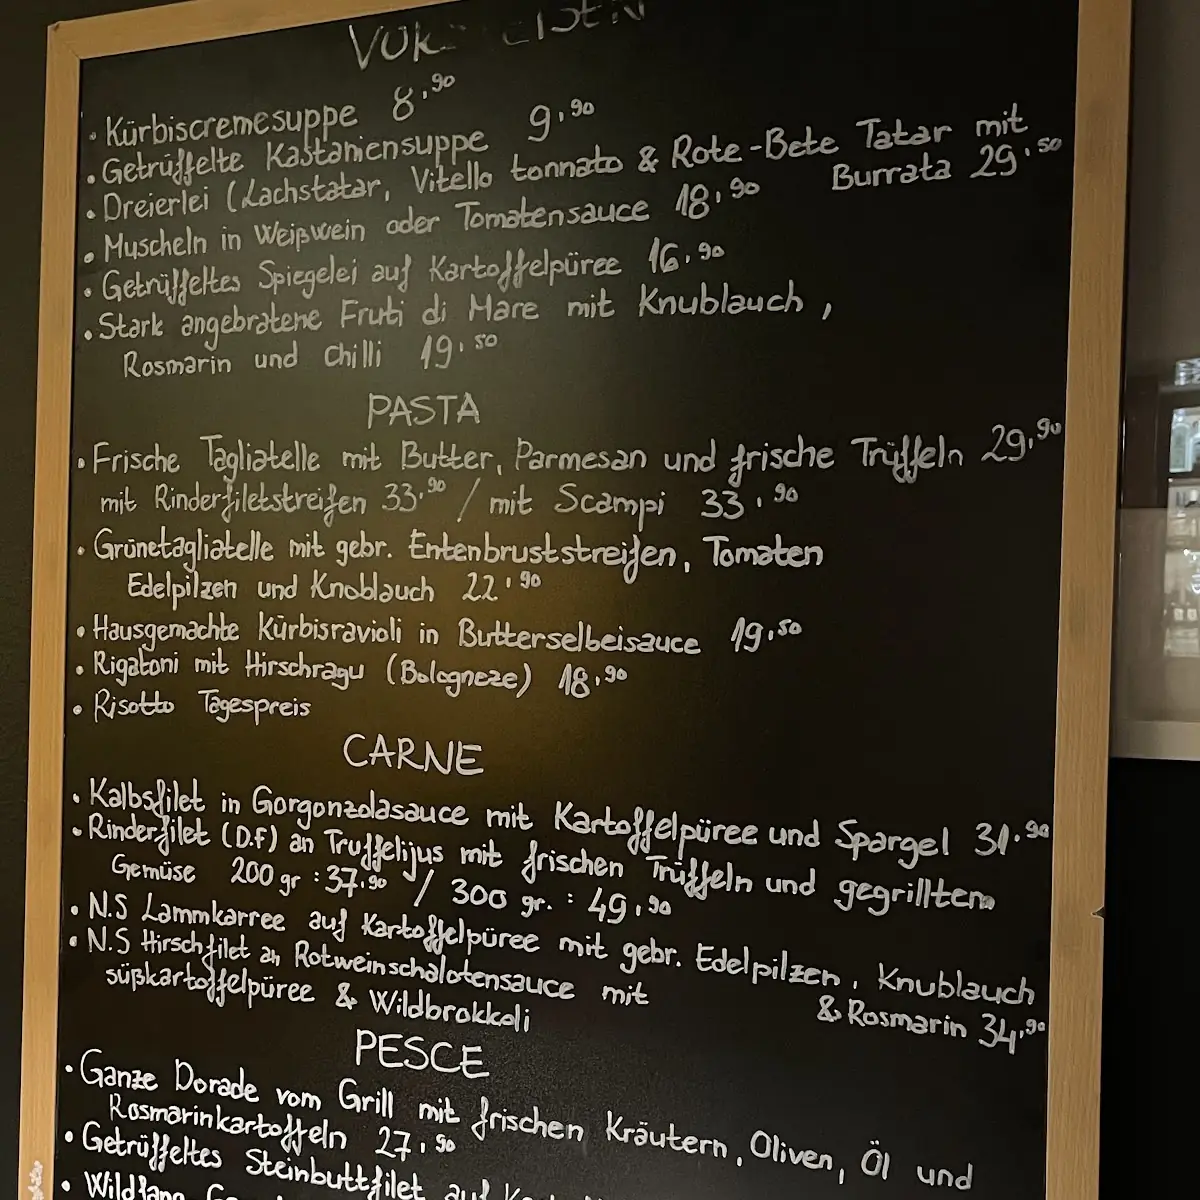 • Kürbiscremesuppe 8,90
• Getrüffelte Kastaniensuppe 9,90
• Dreierlei (Lachstatar, Vitello tonnato & Rote-Bete Tatar mit
Burrata 29,50
• Muscheln in Weißwein oder Tomatensauce 18,90
• Getrüffeltes Spiegelei auf Kartoffelpüree 16,90
• Stark angebratene Fruti di Mare mit Knublauch,
Rosmarin und Chilli 19,50
PASTA
• Frische Tagliatelle mit Butter, Parmesan und frische Trüffeln 29,90
mit Rinderfiletstreifen 33,90 / mit Scampi 33,90
• Grünetagliatelle mit gebr. Entenbruststreifen, Tomaten
Edelpilzen und Knoblauch 22,90
• Hausgemachte Kürbisravioli in Butterselbeisauce 19,50
• Rigatoni mit Hirschragu (Bologneze) 18,90
• Risotto Tagespreis
CARNE
• Kalbsfilet in Gorgonzolasauce mit Kartoffelpüree und Spargel 31,90
• Rinderfilet (D.F) an Truffelijus mit frischen Trüffeln und gegrillten
Gemüse 200 gr : 37,90 / 300 gr. : 49,90
• N.S Lammkarree auf Kartoffelpüree mit gebr. Edelpilzen, Knublauch
& Rosmarin 34,90
• N.S Hirschfilet an Rotweinschalotensauce mit
süßkartoffelpüree & Wildbrokkoli
PESCE
• Ganze Dorade vom Grill mit frischen Kräutern, Oliven, Öl und
Rosmarinkartoffeln 27,90
• Getrüffeltes Steinbuttfilet auf
• Wildfang